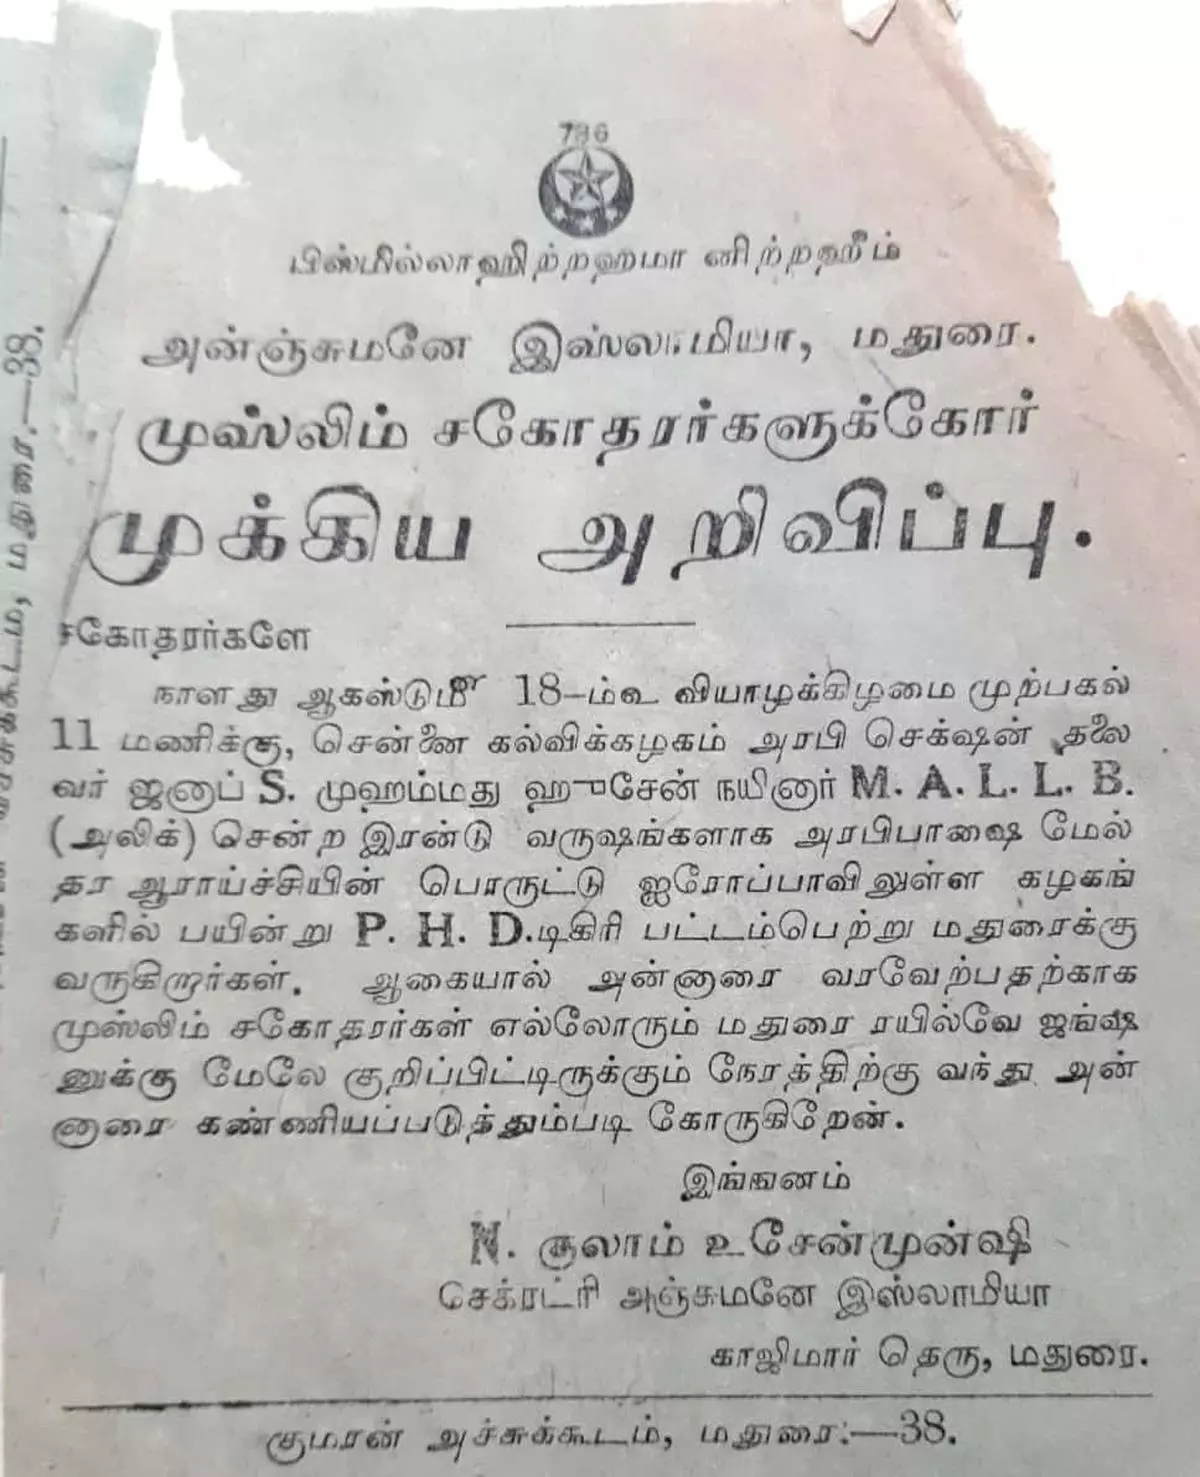 786
பிஸ்மில்லாஹிற்றஹ்மா னிற்றஹீம்
அன்ஞ்சுமனே இஸ்லாமியா, மதுரை.
முஸ்லிம் சகோதரர்களுக்கோர்
முக்கிய அறிவிப்பு.
சகோதரர்களே
நாளது ஆகஸ்டும்௴ 18-ம்௳ வியாழக்கிழமை முற்பகல்
11 மணிக்கு, சென்னை கல்விக்கழகம் அரபி செக்‌ஷன் தலை
வர் ஜனாப் S. முஹம்மது ஹுசேன் நயினார் M. A. L. L. B.
(அலிக்) சென்ற இரண்டு வருஷங்களாக அரபிபாஷை மேல்
தர ஆராய்ச்சியின் பொருட்டு ஐரோப்பாவிலுள்ள கழகங்
களில் பயின்று P. H. D. டிகிரி பட்டம்பெற்று மதுரைக்கு
வருகிறார்கள். ஆகையால் அன்னாரை வரவேற்பதற்காக
முஸ்லிம் சகோதரர்கள் எல்லோரும் மதுரை ரயில்வே ஜங்ஷ
னுக்கு மேலே குறிப்பிட்டிருக்கும் நேரத்திற்கு வந்து அன்
னாரை கண்ணியப்படுத்தும்படி கோருகிறேன்.
இங்ஙனம்
N. குலாம் உசேன்முன்ஷி
செக்ரட்ரி அஞ்சுமனே இஸ்லாமியா
காஜிமார் தெரு, மதுரை.
குமரன் அச்சுக்கூடம், மதுரை:—38.
ச்சுக்கூடம், மதுரை.—38.